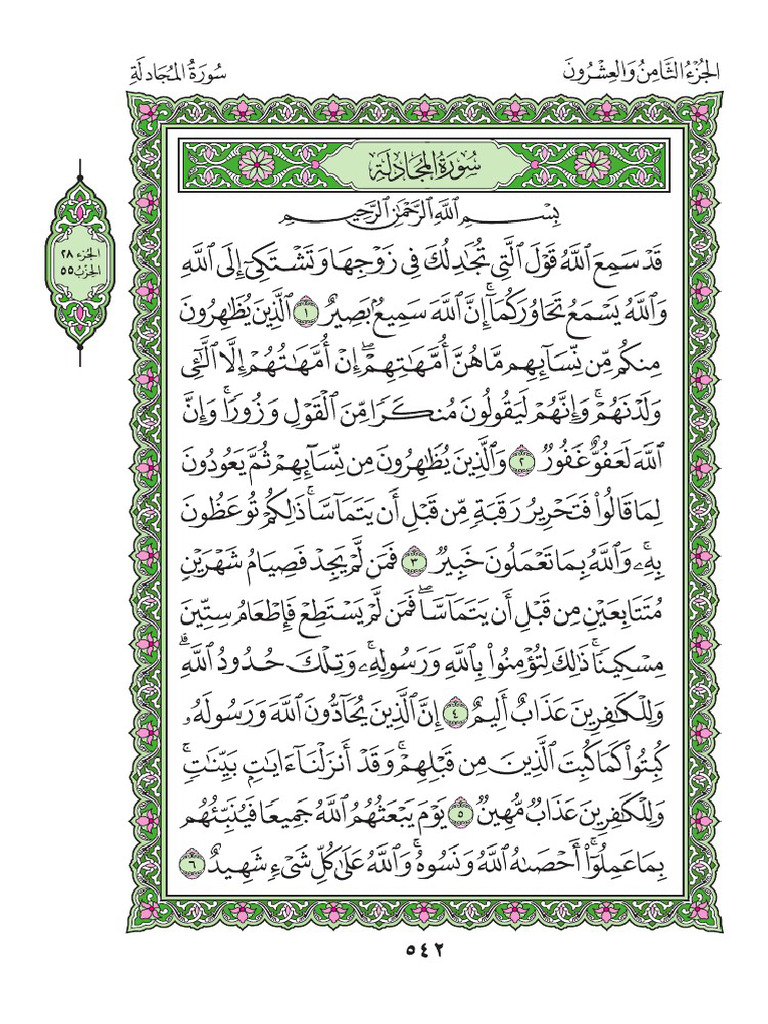 الجُزْءُ الثَّامِنُ وَالعِشْرُونَ
سُورَةُ المُجَادلَةِ
سُورَةُ المُجَادِلَةِ
بِسْمِ ٱللَّهِ ٱلرَّحْمَٰنِ ٱلرَّحِيمِ
الجُزْء ٢٨
الحِزْبُ ٥٥
قَدْ سَمِعَ ٱللَّهُ قَوْلَ ٱلَّتِى تُجَٰدِلُكَ فِى زَوْجِهَا وَتَشْتَكِىٓ إِلَى ٱللَّهِ
وَٱللَّهُ يَسْمَعُ تَحَاوُرَكُمَآ ۚ إِنَّ ٱللَّهَ سَمِيعٌۢ بَصِيرٌ ١ ٱلَّذِينَ يُظَٰهِرُونَ
مِنكُم مِّن نِّسَآئِهِم مَّا هُنَّ أُمَّهَٰتِهِمْ ۖ إِنْ أُمَّهَٰتُهُمْ إِلَّا ٱلَّٰٓـِٔى
وَلَدْنَهُمْ ۚ وَإِنَّهُمْ لَيَقُولُونَ مُنكَرًا مِّنَ ٱلْقَوْلِ وَزُورًا ۚ وَإِنَّ
ٱللَّهَ لَعَفُوٌّ غَفُورٌ ٢ وَٱلَّذِينَ يُظَٰهِرُونَ مِن نِّسَآئِهِمْ ثُمَّ يَعُودُونَ
لِمَا قَالُوا۟ فَتَحْرِيرُ رَقَبَةٍ مِّن قَبْلِ أَن يَتَمَآسَّا ۚ ذَٰلِكُمْ تُوعَظُونَ
بِهِۦ ۚ وَٱللَّهُ بِمَا تَعْمَلُونَ خَبِيرٌ ٣ فَمَن لَّمْ يَجِدْ فَصِيَامُ شَهْرَيْنِ
مُتَتَابِعَيْنِ مِن قَبْلِ أَن يَتَمَآسَّا ۖ فَمَن لَّمْ يَسْتَطِعْ فَإِطْعَامُ سِتِّينَ
مِسْكِينًا ۚ ذَٰلِكَ لِتُؤْمِنُوا۟ بِٱللَّهِ وَرَسُولِهِۦ ۚ وَتِلْكَ حُدُودُ ٱللَّهِ ۗ
وَلِلْكَٰفِرِينَ عَذَابٌ أَلِيمٌ ٤ إِنَّ ٱلَّذِينَ يُحَآدُّونَ ٱللَّهَ وَرَسُولَهُۥ
كُبِتُوا۟ كَمَا كُبِتَ ٱلَّذِينَ مِن قَبْلِهِمْ ۚ وَقَدْ أَنزَلْنَآ ءَايَٰتٍۭ بَيِّنَٰتٍ ۚ
وَلِلْكَٰفِرِينَ عَذَابٌ مُّهِينٌ ٥ يَوْمَ يَبْعَثُهُمُ ٱللَّهُ جَمِيعًا فَيُنَبِّئُهُم
بِمَا عَمِلُوٓا۟ ۚ أَحْصَىٰهُ ٱللَّهُ وَنَسُوهُ ۚ وَٱللَّهُ عَلَىٰ كُلِّ شَىْءٍ شَهِيدٌ ٦
٥٤٢